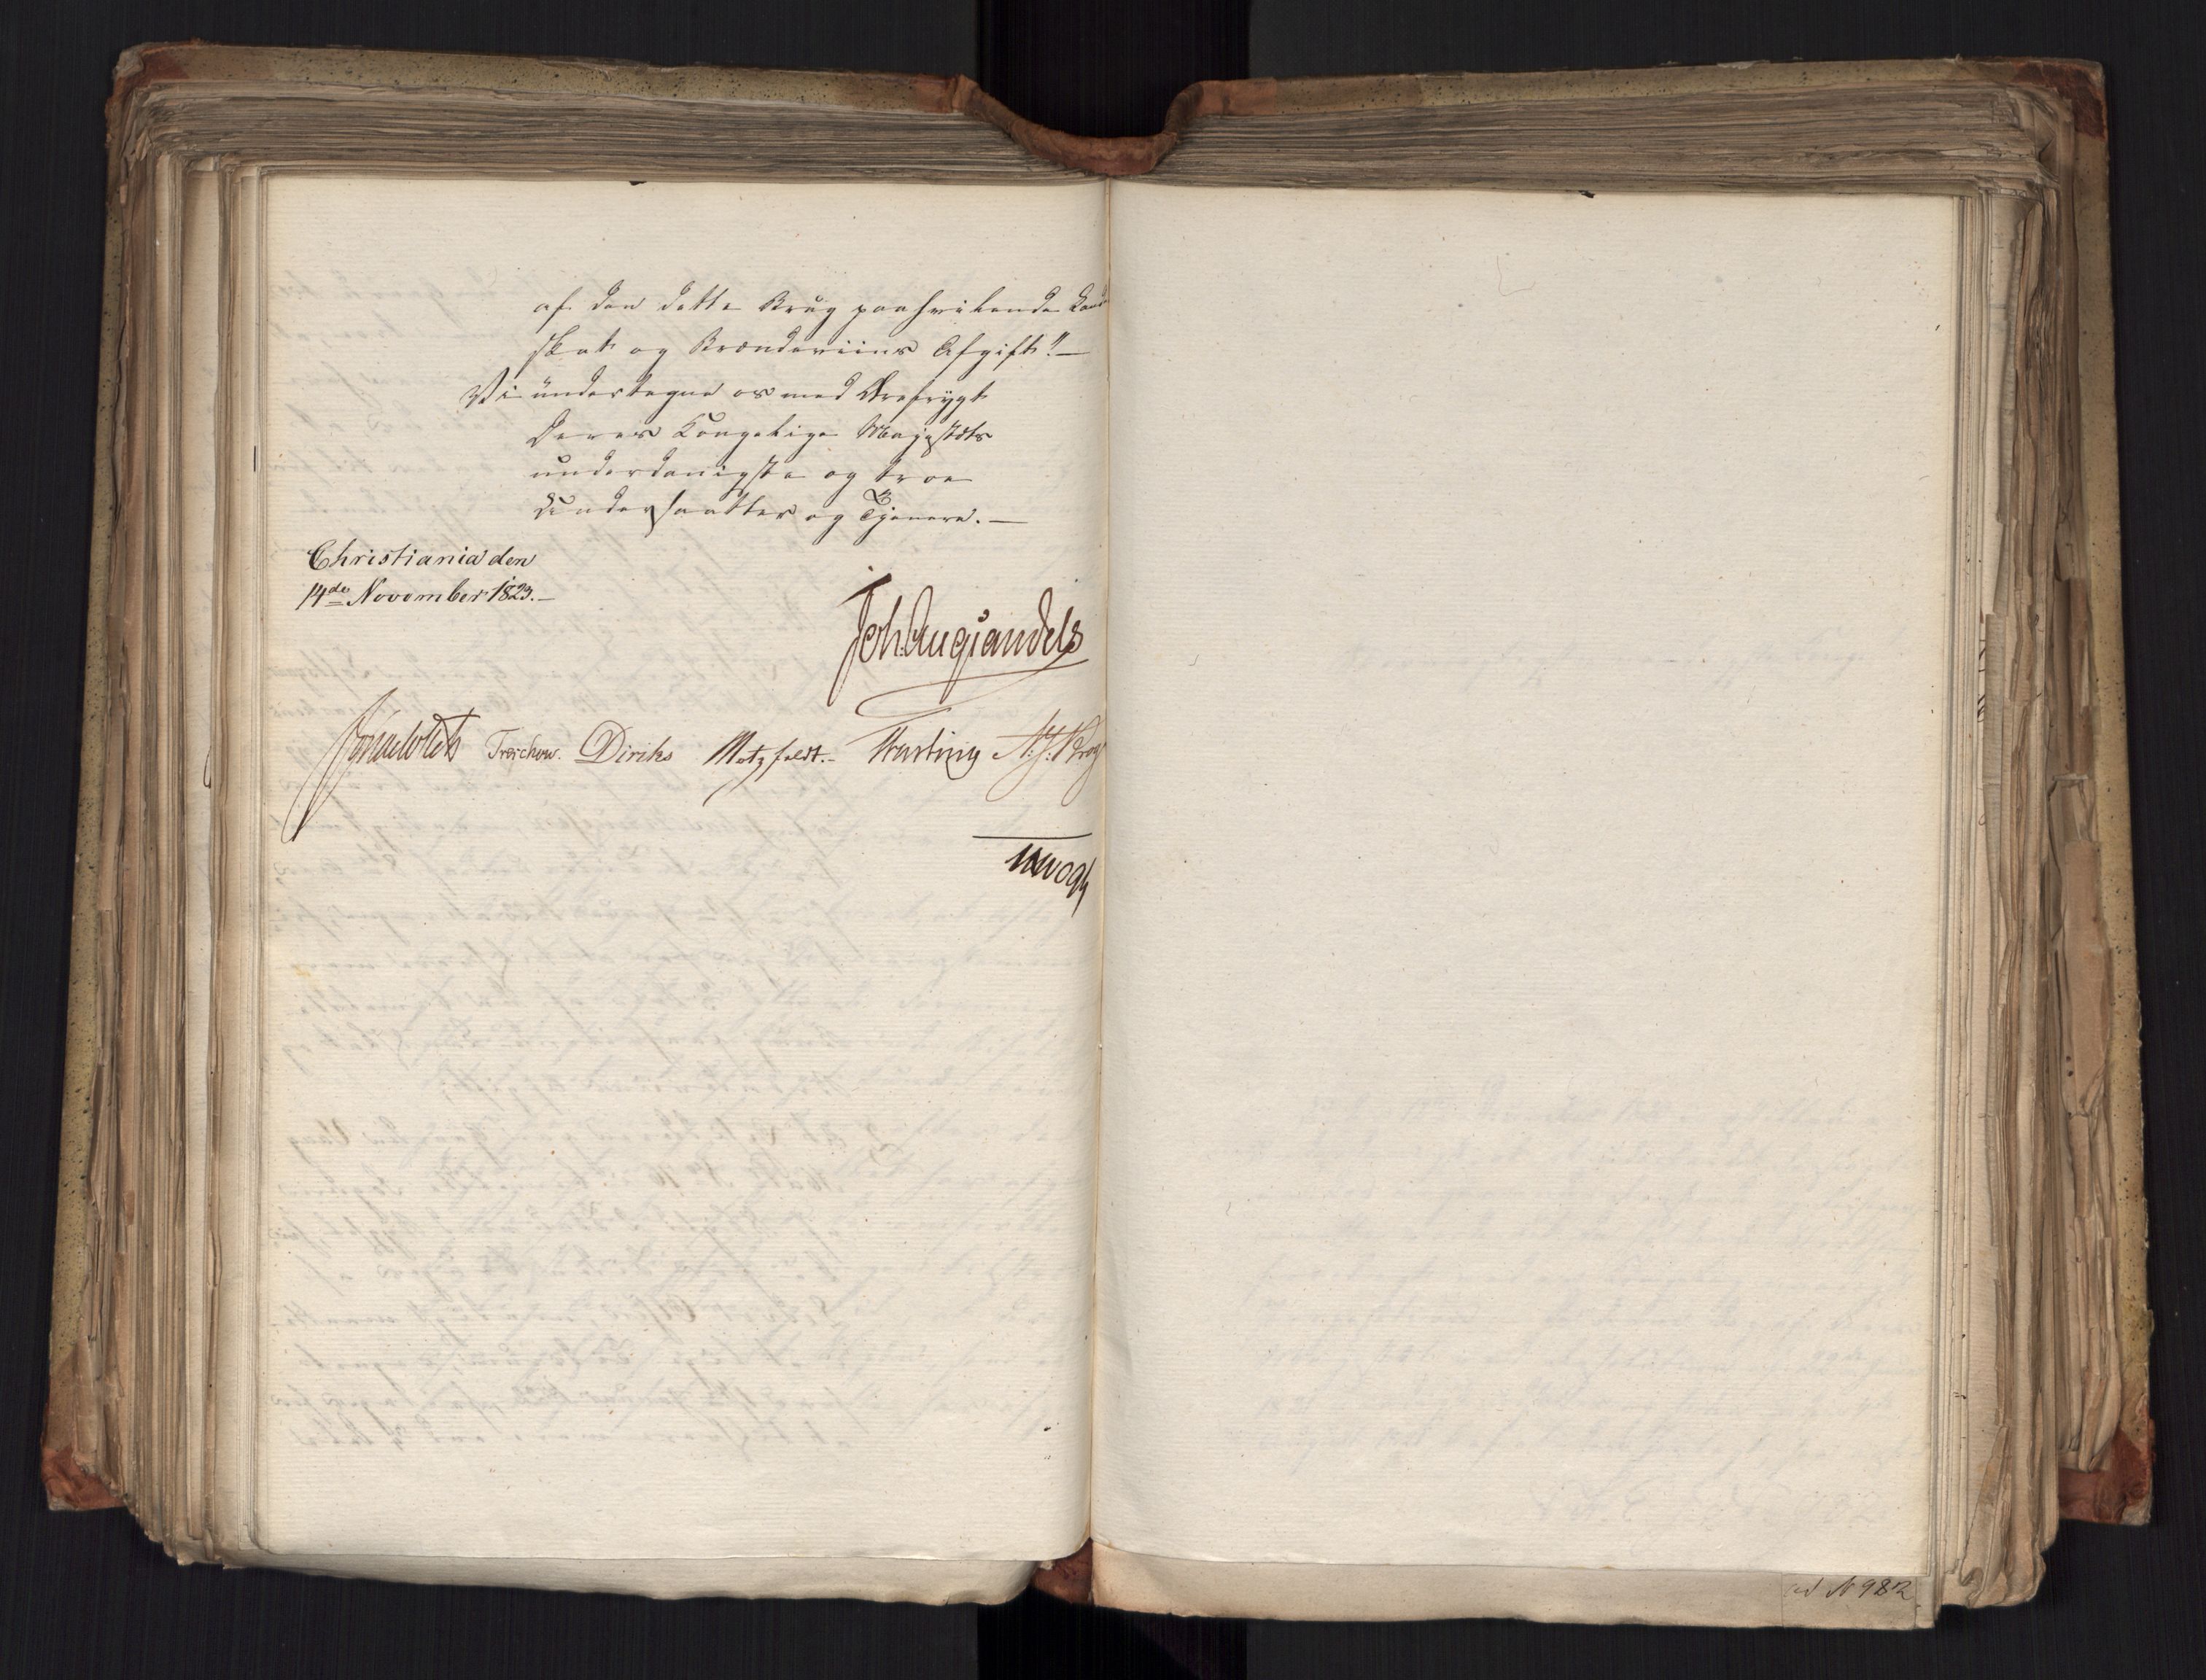 af den dette Brug paahvilende Land
skat og Brænderiins Afgift!"—
Vi undertegne os med Ærefrygt
Deres Kongelige Majestæts
underdanigste og troe
Undersaatter og Tjenere.—
Christiania den
14de November 1823.—
Joh. Aug Sandels
Jonas Collett Treschow. Diriks Motzfeldt.- Fasting N: J: Krog
NVogt
ad N 982